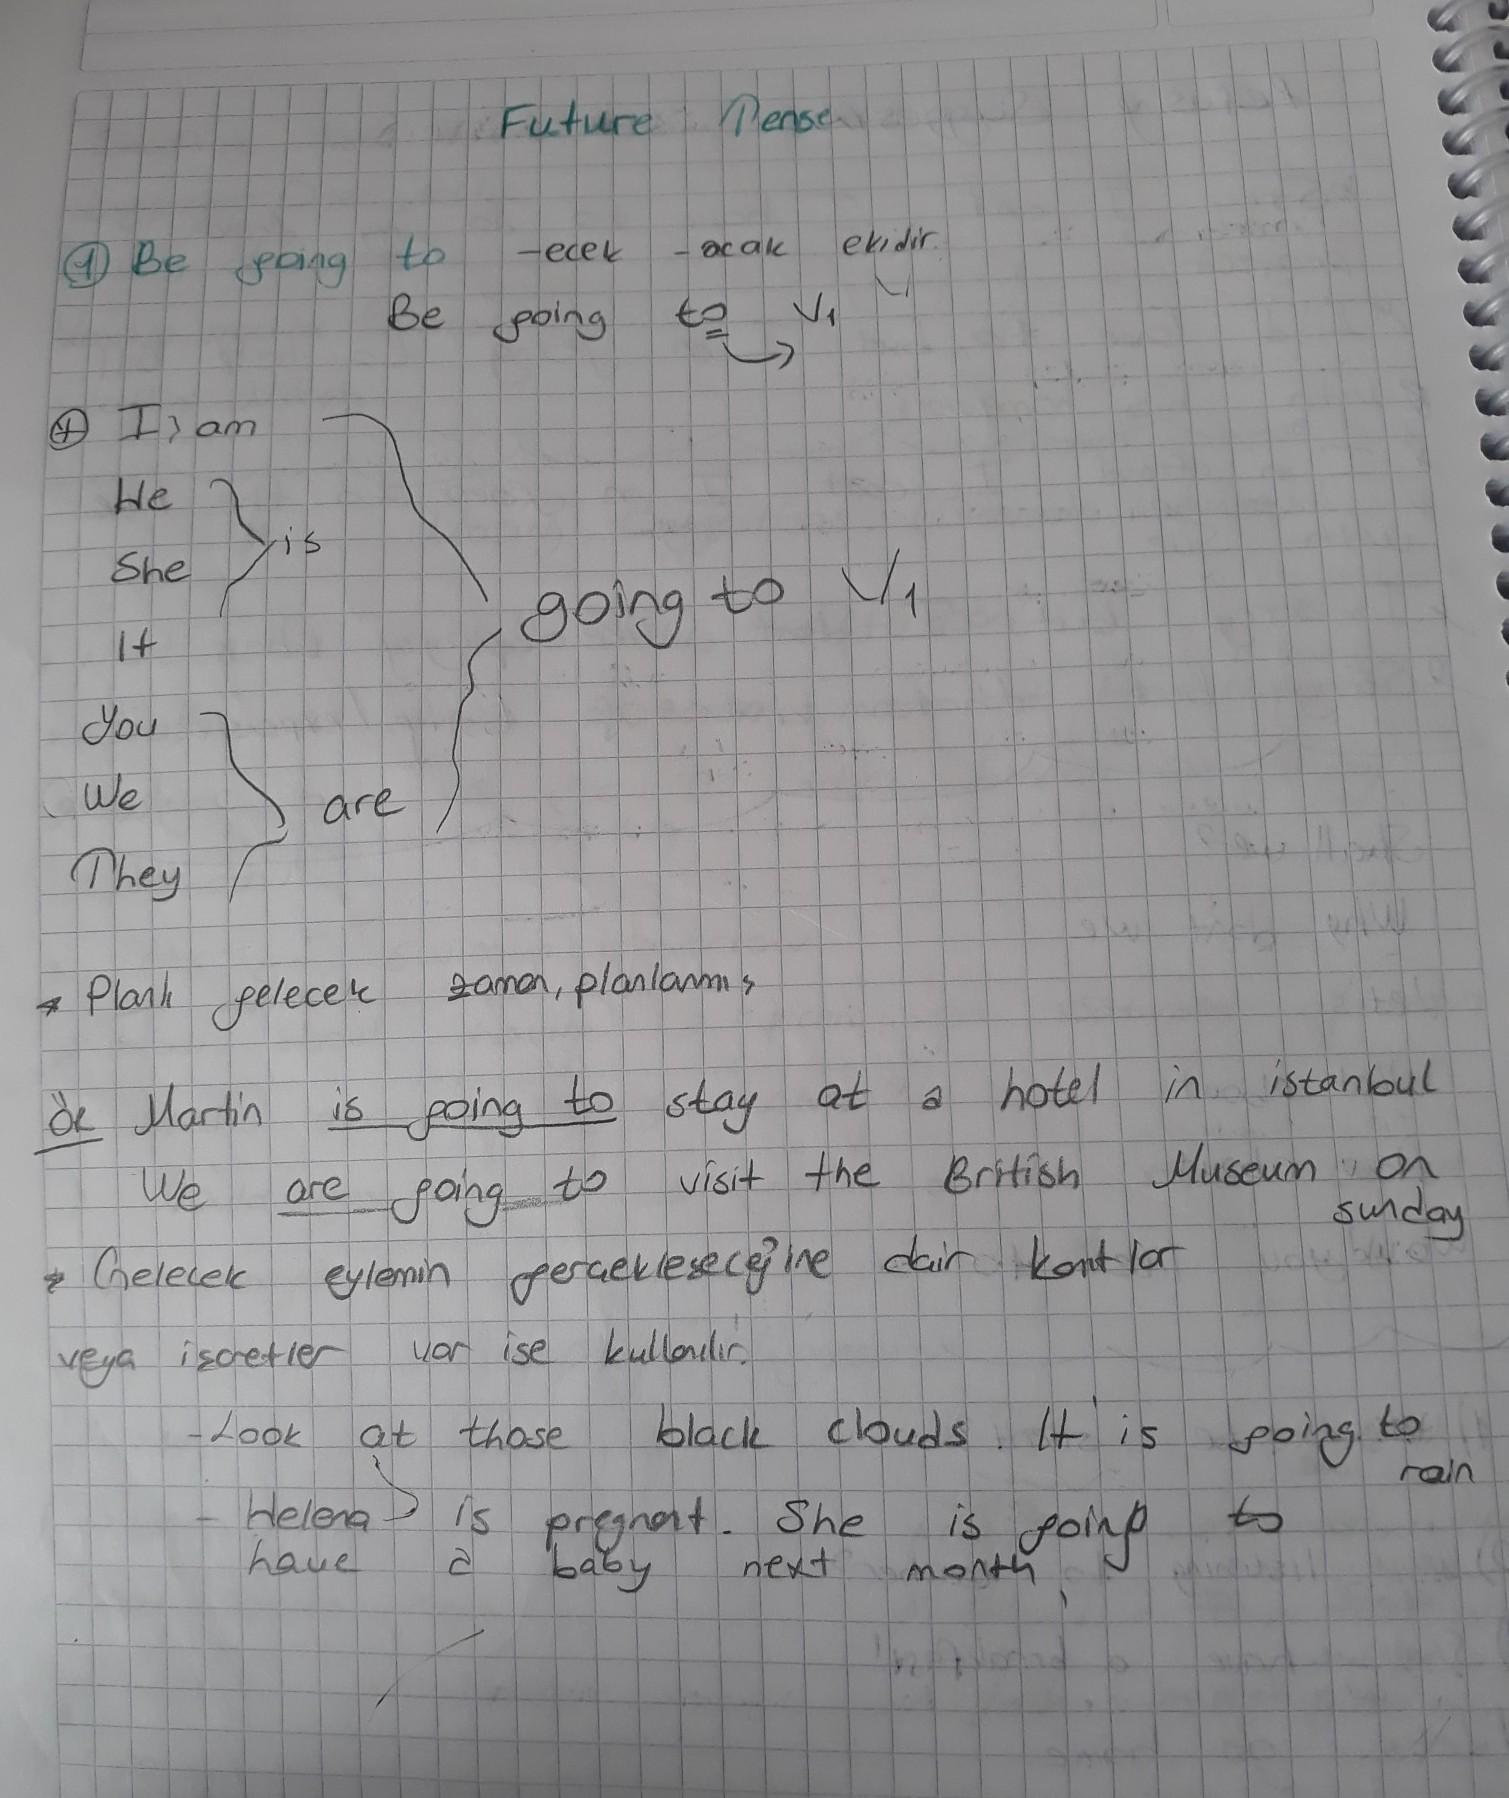 Future Tense
① Be going to -ecek -acak ekidir.
Be going to V1
⊕ I } am
He
She
is
It
going to V1
You
We
are
They
* Planlı gelecek zaman, planlanmış
ör Martin is going to stay at a hotel in istanbul
We are going to visit the British Museum on
sunday
* Gelecek eylemin gerçekleşeceğine dair kanıtlar
veya işaretler var ise kullanılır.
- Look at those black clouds. It is going to
rain
- Helena is pregnant. She is going to
have a baby next month